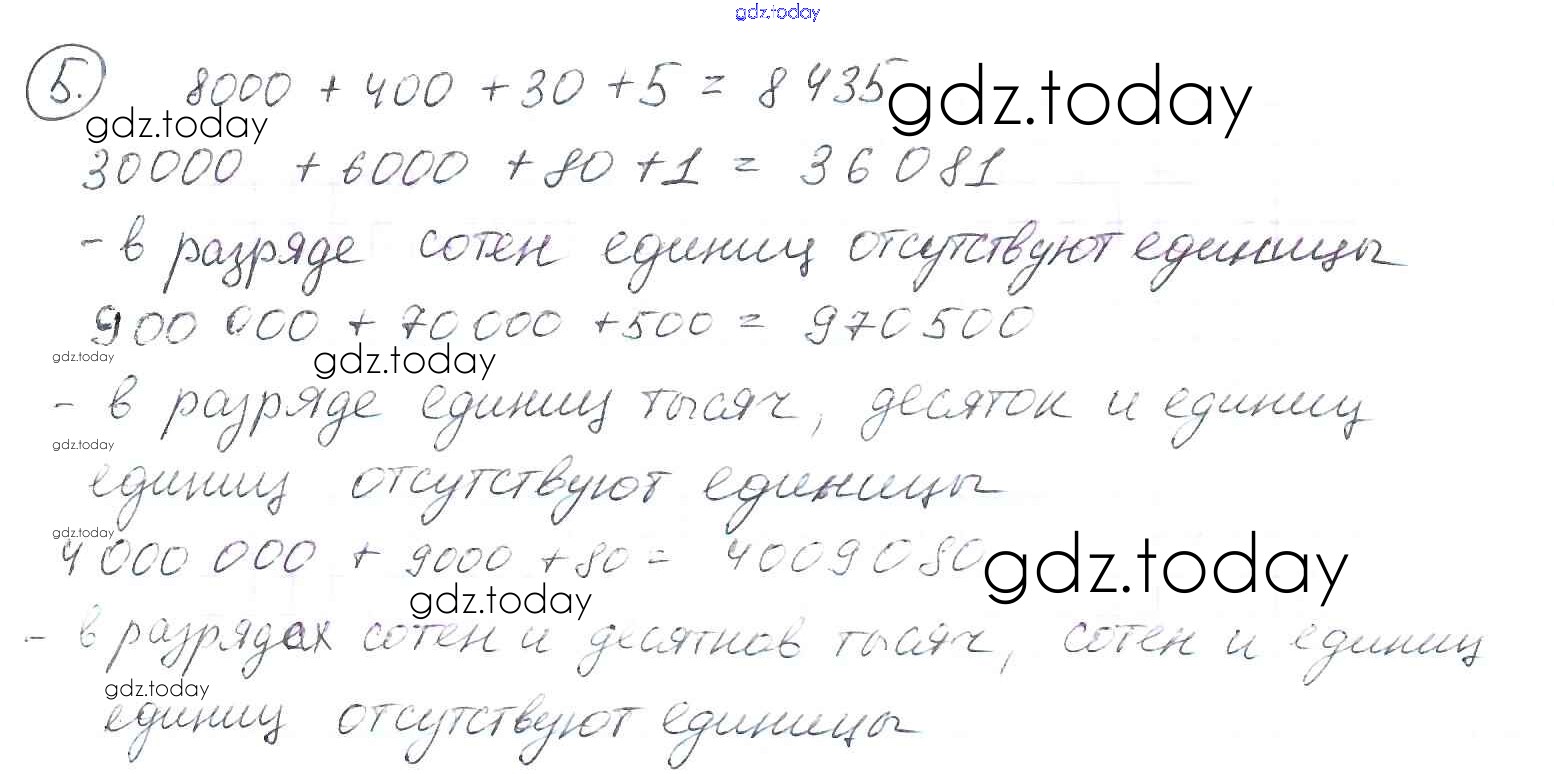 gdz.today
5. 8000 + 400 + 30 + 5 = 8435
gdz.today
gdz.today
30000 + 6000 + 80 + 1 = 36081
- в разряде сотен единиц отсутствуют единицы
900 000 + 70 000 + 500 = 970 500
gdz.today
gdz.today
- в разряде единиц тысяч, десяток и единиц
gdz.today
единиц отсутствуют единицы
gdz.today
4 000 000 + 9000 + 80 = 4009080
gdz.today
gdz.today
- в разрядах сотен и десятков тысяч, сотен и единиц
gdz.today
единиц отсутствуют единицы